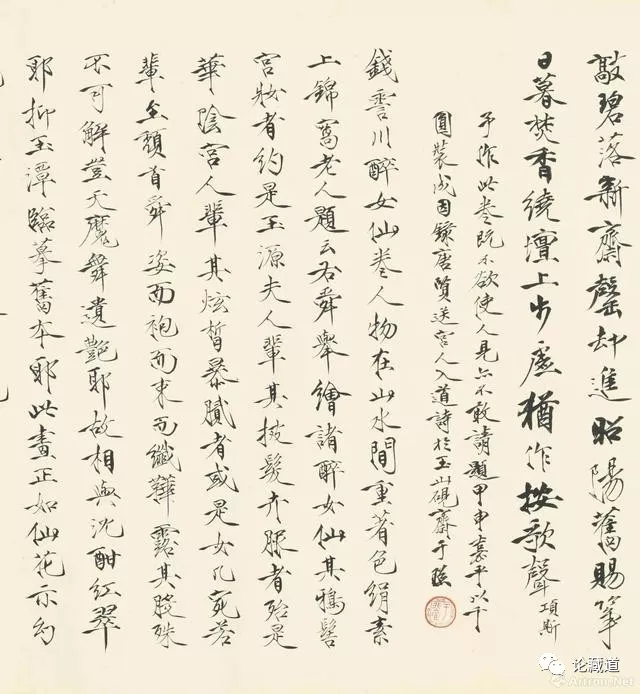 敲碧落新齋磬却進昭陽舊賜箏
日暮焚香繞壇上步虛猶作按歌聲 項斯
予作此卷既不欲使人見亦不敢請題甲申袁平以干
圓裝成因錄唐賢送宮人入道詩於玉山硯齋于
錢霅川醉女仙卷人物在山水間重著色絹素
上錦窩老人題云右舜舉繪諸醉女仙其鴉髻
宮妝者約是玉源夫人輩其披髮卉服者殆是
華陰宮人輩其炫皙暴膩者或是女几宛若
輩至頫首舜姿而袍而束而纖鞾露其肢殊
不可解豈天魔舞遺艷耶故相與沈酣紅翠
耶抑玉潭臨摹舊本耶此畫正如仙花示約
论藏道
Artron.Net